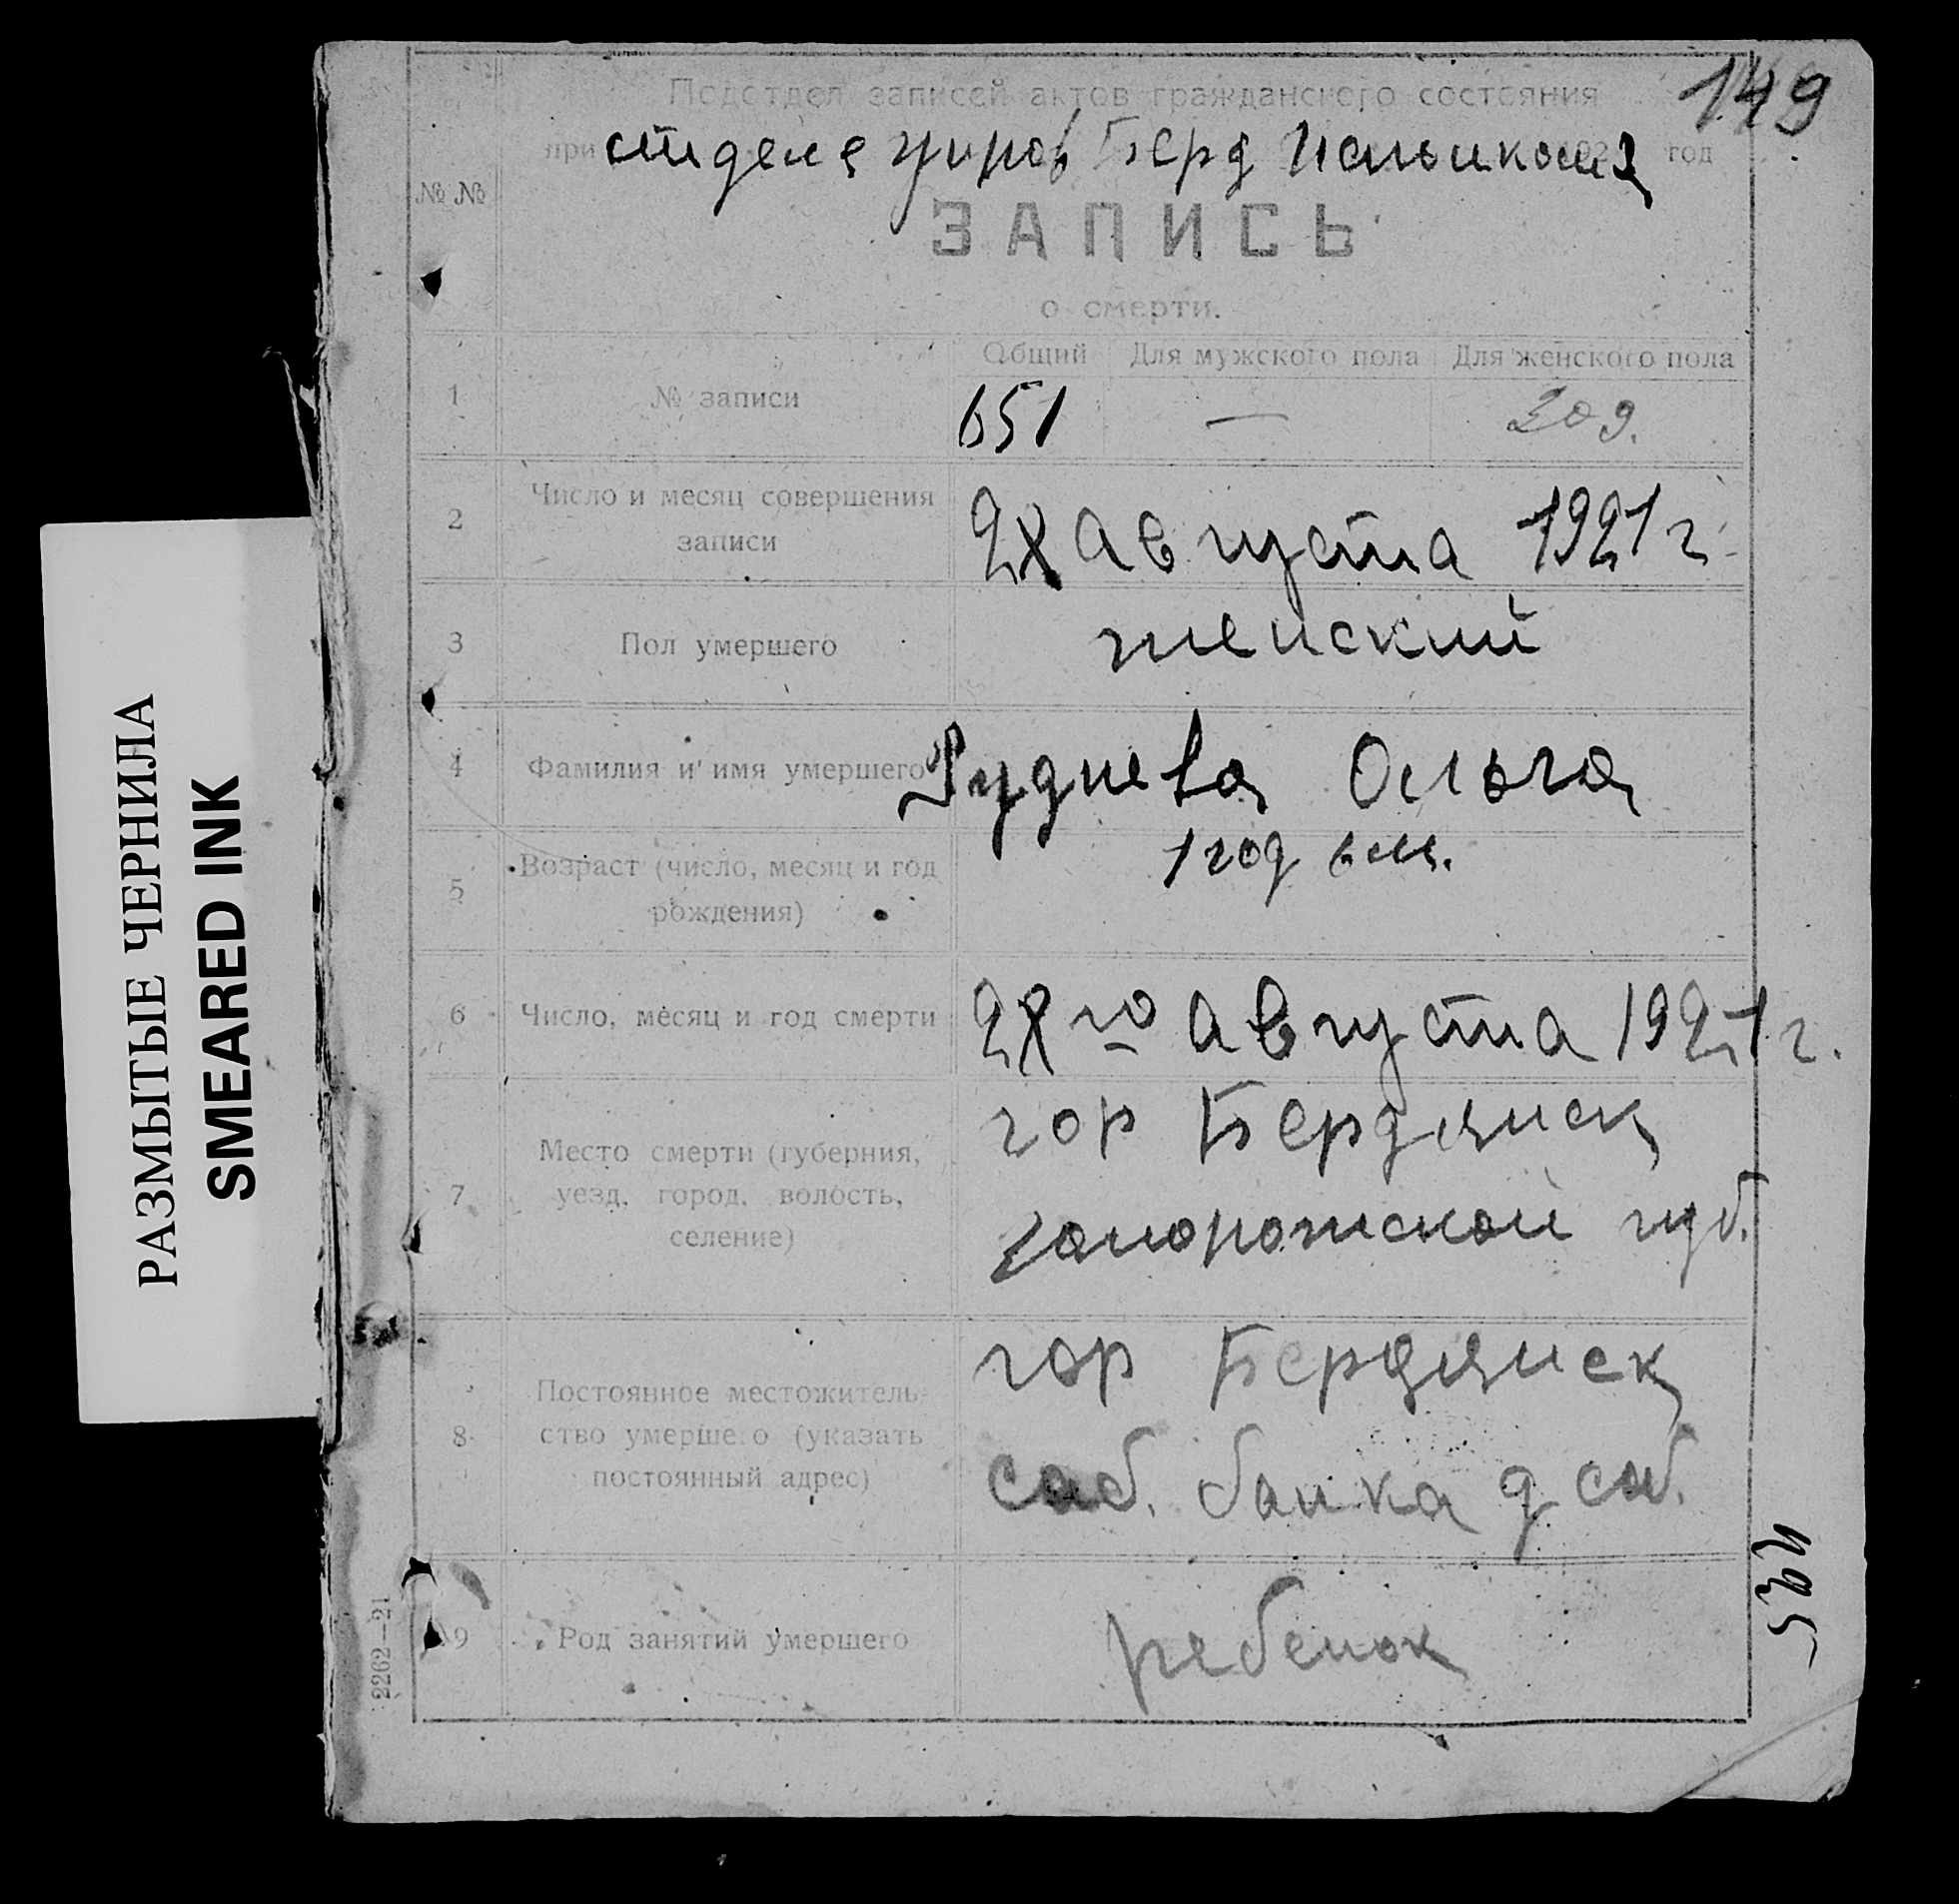 РАЗМЫТЫЕ ЧЕРНИЛА
SMEARED INK
149
Подотдел записей актов гражданского состояния
при отделе Берд 192 год
№ №
ЗАПИСЬ
о смерти.
Общий Для мужского пола Для женского пола
1 № записи 651 — 309.
2 Число и месяц совершения
записи
28 августа 1921 г.
3 Пол умершего женский
4 Фамилия и имя умершего Руднева Ольга
5 Возраст (число, месяц и год
рождения)
1 год 6 м.
6 Число, месяц и год смерти 28 го августа 1921 г.
7 Место смерти (губерния,
уезд, город, волость,
селение)
гор Бердянск
Запорожской губ.
8 Постоянное местожитель-
ство умершего (указать
постоянный адрес)
гор Бердянск
соб. банка д соб.
9 Род занятий умершего ребенок
2262—21